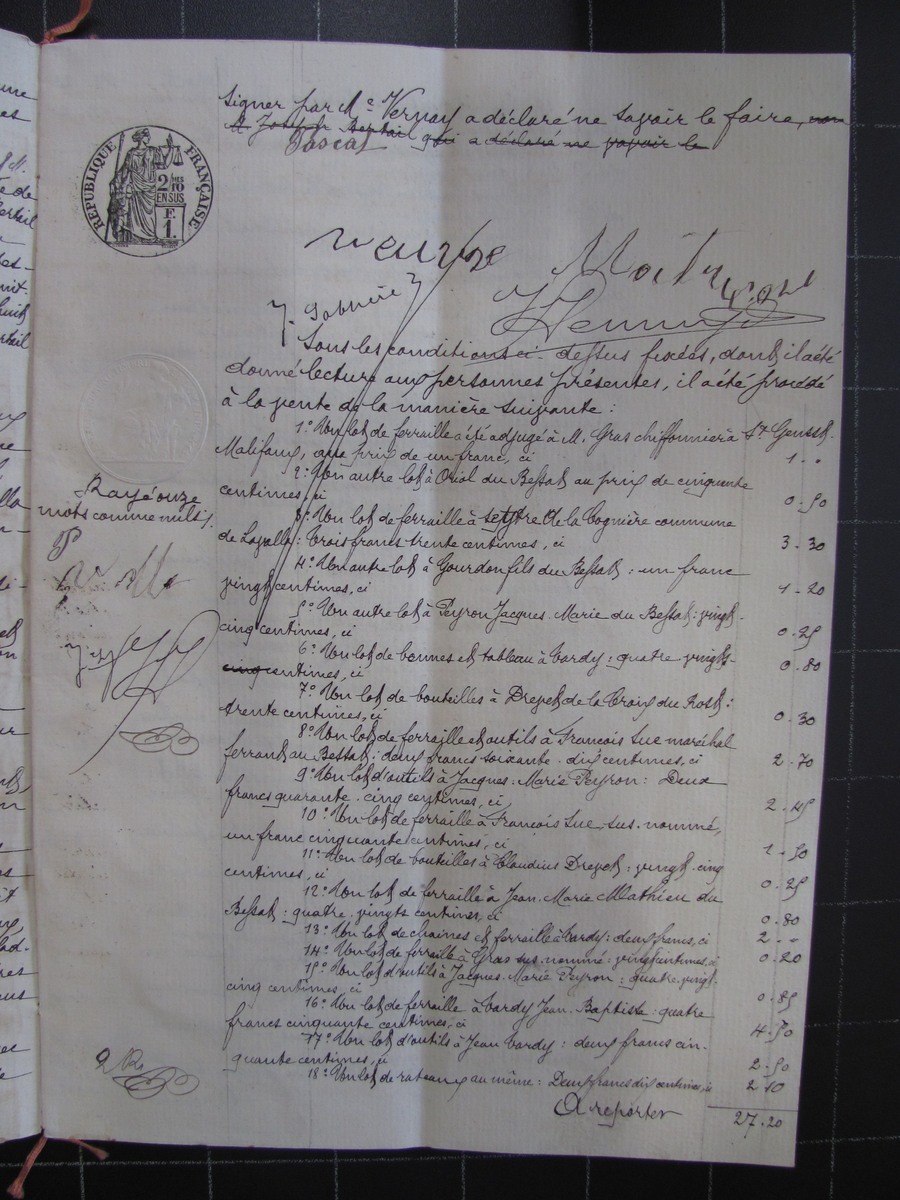 signer par Me Vernay a déclaré ne savoir le faire, non
M. Joseph Bertail qui a déclaré ne pouvoir le
Pascal
RÉPUBLIQUE FRANÇAISE
2/10MES
EN SUS
F.
1.
Sous les conditions ci-dessus fixées, dont il a été
donné lecture aux personnes présentes, il a été procédé
à la vente de la manière suivante :
1° Un lot de ferraille a été adjugé à M. Gras chiffonnier à St Genest-
Malifaux, au prix de un franc, ci 1 - "
2° Un autre lot à Oriol du Bessat au prix de cinquante
centimes, ci 0-50
3° Un lot de ferraille à de la Cognière commune
de Lavalla : trois francs trente centimes, ci 3-30
4° Un autre lot à Gourdon fils du Bessat : un franc
vingt centimes, ci 1-20
5° Un autre lot à Peyron Jacques-Marie du Bessat : vingt-
cinq centimes, ci 0-25
6° Un lot de bennes et tableau à Tardy : quatre-vingts-
cinq centimes, ci 0-80
7° Un lot de bouteilles à Drevet de la Croix du :
trente centimes, ci 0-30
8° Un lot de ferraille et outils à Francois Sue maréchal
ferrant au Bessat : deux francs soixante-dix centimes, ci 2-70
9° Un lot d'outils à Jacques-Marie Peyron : Deux
francs quarante-cinq centimes, ci 2-45
10° Un lot de ferraille à Francois Sue sus-nommé,
un franc cinquante centimes, ci 1-50
11° Un lot de bouteilles à Claudius Drevet : vingt-cinq
centimes, ci 0-25
12° Un lot de ferraille à Jean-Marie Mathieu du
Bessat : quatre-vingts centimes, ci 0-80
13° Un lot de chaines et ferraille à Tardy : deux francs, ci 2 - "
14° Un lot de ferraille à Gras sus-nommé : vingt centimes, ci 0-20
15° Un lot d'outils à Jacques-Marie Peyron : quatre-vingt-
cinq centimes, ci 0-85
16° Un lot de ferraille à Tardy Jean-Baptiste : quatre
francs cinquante centimes, ci 4-50
17° Un lot d'outils à Jean Tardy : deux francs cin-
quante centimes, ci 2-50
18° Un lot de rateaux au même : Deux francs dix centimes, ci 2-10
A reporter 27-20
Rayé onze
mots comme nuls